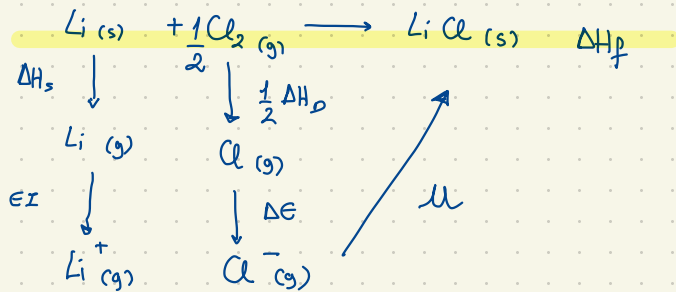 Li (s) + 1/2 Cl₂ (g) → LiCl (s) ΔHf
ΔHs ↓ ↓ 1/2 ΔHD
Li (g) Cl (g)
EI ↓ ↓ ΔE U
Li⁺ (g) Cl⁻ (g)